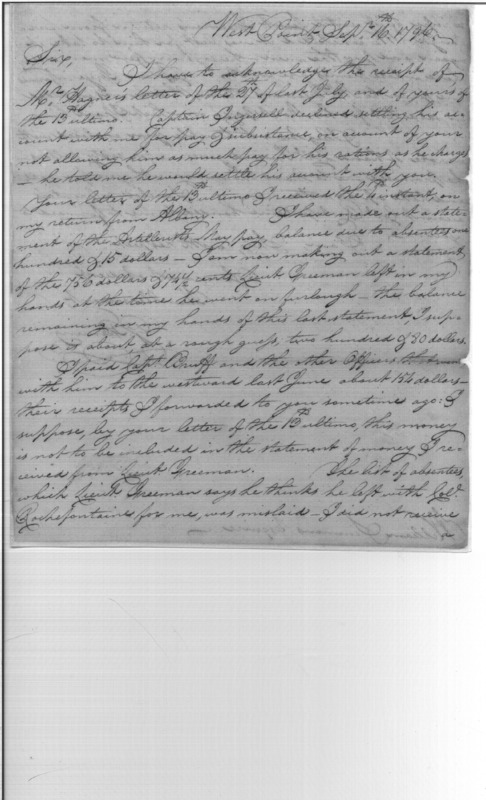 West Point Sepr. 16th. 1796.
Sir,
I have to acknowledge the receipt of
Mr. Hagner's letter of the 27th of last July and of yours of
the 13th ultimo. Captain declined settling his ac-
count with me for pay & subsistance, on account of your
not allowing him as much pay for his rations as he charges
— he told me he would settle his account with you.
Your letter of the 13th ultimo I received the instant, on
my return from Albany. I have made out a state-
ment of the Artillerists May pay, balance due to absentees one
hundred & 15 dollars — I am now making out a statement
of the 756 dollars & cents Lieut Freeman left in my
hands at the time he went on furlough — the balance
remaining in my hands of this last statement I sup-
pose is about, at a rough guess, two hundred & 80 dollars.
I paid Capt. Bruff and the other Officers
with him to the westward last June about 154 dollars —
their receipts I forwarded to you sometime ago: I
suppose, by your letter of the 13th ultimo, this money
is not to be included in the statement of money I re-
ceived from Lieut Freeman. The list of absentees,
which Lieut Freeman says he thinks he left with Col.
Rochefontaine for me, was mislaid — I did not receive
a